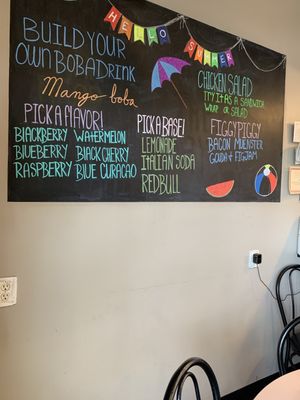 HELLO SUMMER
BUILD YOUR
OWN BOBA DRINK
Mango boba
PICK A FLAVOR!
BLACKBERRY WATERMELON
BLUEBERRY BLACK CHERRY
RASPBERRY BLUE CURACAO
PICK A BASE!
LEMONADE
ITALIAN SODA
REDBULL
CHICKEN SALAD
TRY IT AS A SANDWICH
WRAP OR SALAD
FIGGY PIGGY
BACON MUENSTER
GOUDA & FIG JAM